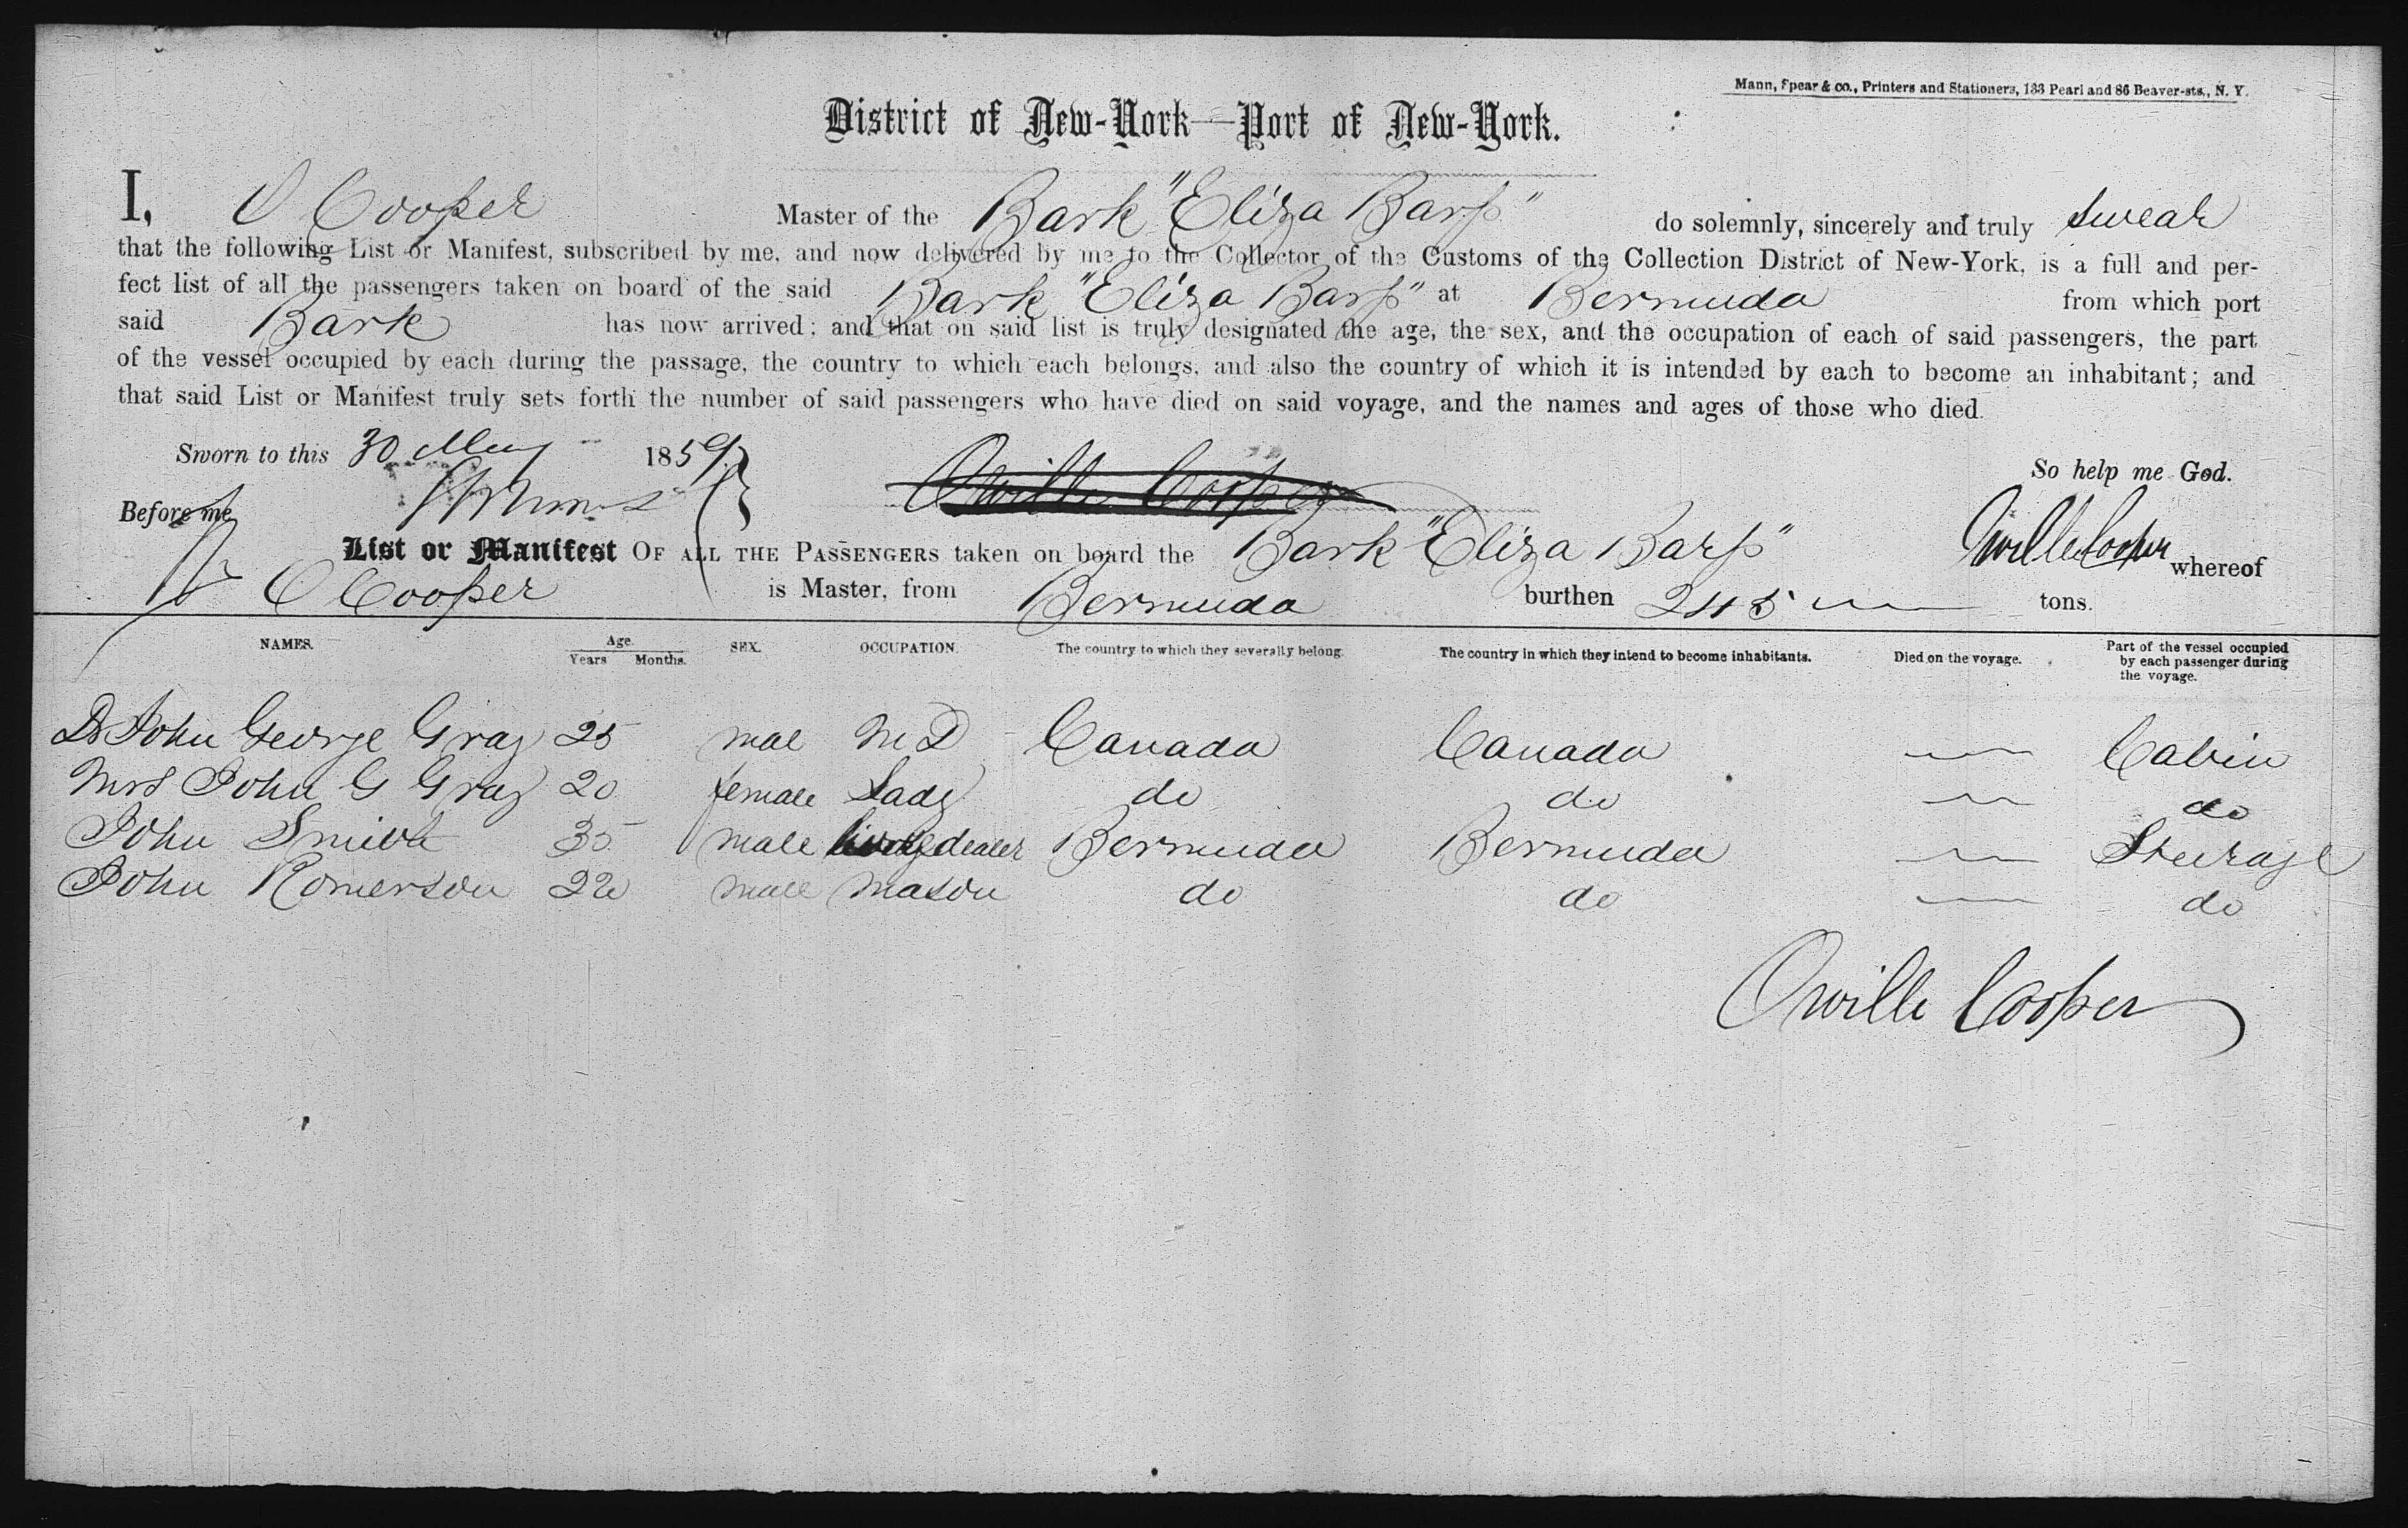 Mann, Spear & co., Printers and Stationers, 133 Pearl and 86 Beaver-sts., N. Y.
District of New-York—Port of New-York.
I, O Cooper Master of the Bark "Eliza Barss" do solemnly, sincerely and truly swear
that the following List or Manifest, subscribed by me, and now delivered by me to the Collector of the Customs of the Collection District of New-York, is a full and per-
fect list of all the passengers taken on board of the said Bark "Eliza Barss" at Bermuda from which port
said Bark has now arrived; and that on said list is truly designated the age, the sex, and the occupation of each of said passengers, the part
of the vessel occupied by each during the passage, the country to which each belongs, and also the country of which it is intended by each to become an inhabitant; and
that said List or Manifest truly sets forth the number of said passengers who have died on said voyage, and the names and ages of those who died.
Sworn to this 30 May 1859 Orville Cooper So help me God.
Before me
List or Manifest OF ALL THE PASSENGERS taken on board the Bark "Eliza Barss" Orville Cooper whereof
O Cooper is Master, from Bermuda burthen 245 tons.
NAMES. Age. Years Months. SEX. OCCUPATION. The country to which they severally belong. The country in which they intend to become inhabitants. Died on the voyage. Part of the vessel occupied by each passenger during the voyage.
Dr John George Gray 25 mal M D Canada Canada — Cabin
Mrs John G Gray 20 female Lady do do — do
John 35 male dealer Bermuda Bermuda — Steerage
John Romerson 22 male mason do do — do
Orville Cooper